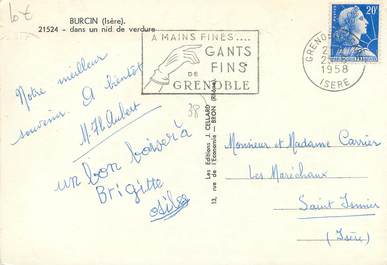 10 €
BURCIN (Isère).
21524 - dans un nid de verdure
A MAINS FINES....
GANTS
FINS
DE
GRENOBLE
GRENOBLE
1958
ISERE
20F
Notre meilleur
souvenir. A bientôt
M. Th Aubert
un bon baiser à
Brigitte
38
Les Editions J. CELLARD
13, rue de l'Economie - BRON (Rhône)
Monsieur et Madame Carrier
Les Maréchaux
Saint Ismier
(Isère)